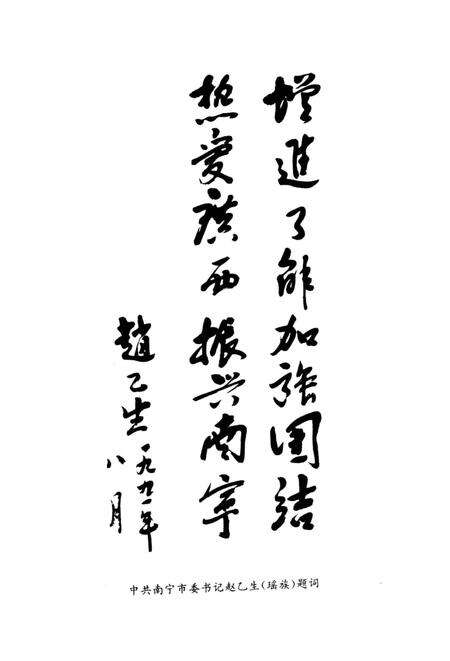 增進了解加強团結
热爱廣西振兴南宁
趙乙生一九九一年
八月
中共南宁市委书记赵乙生(瑶族)题词